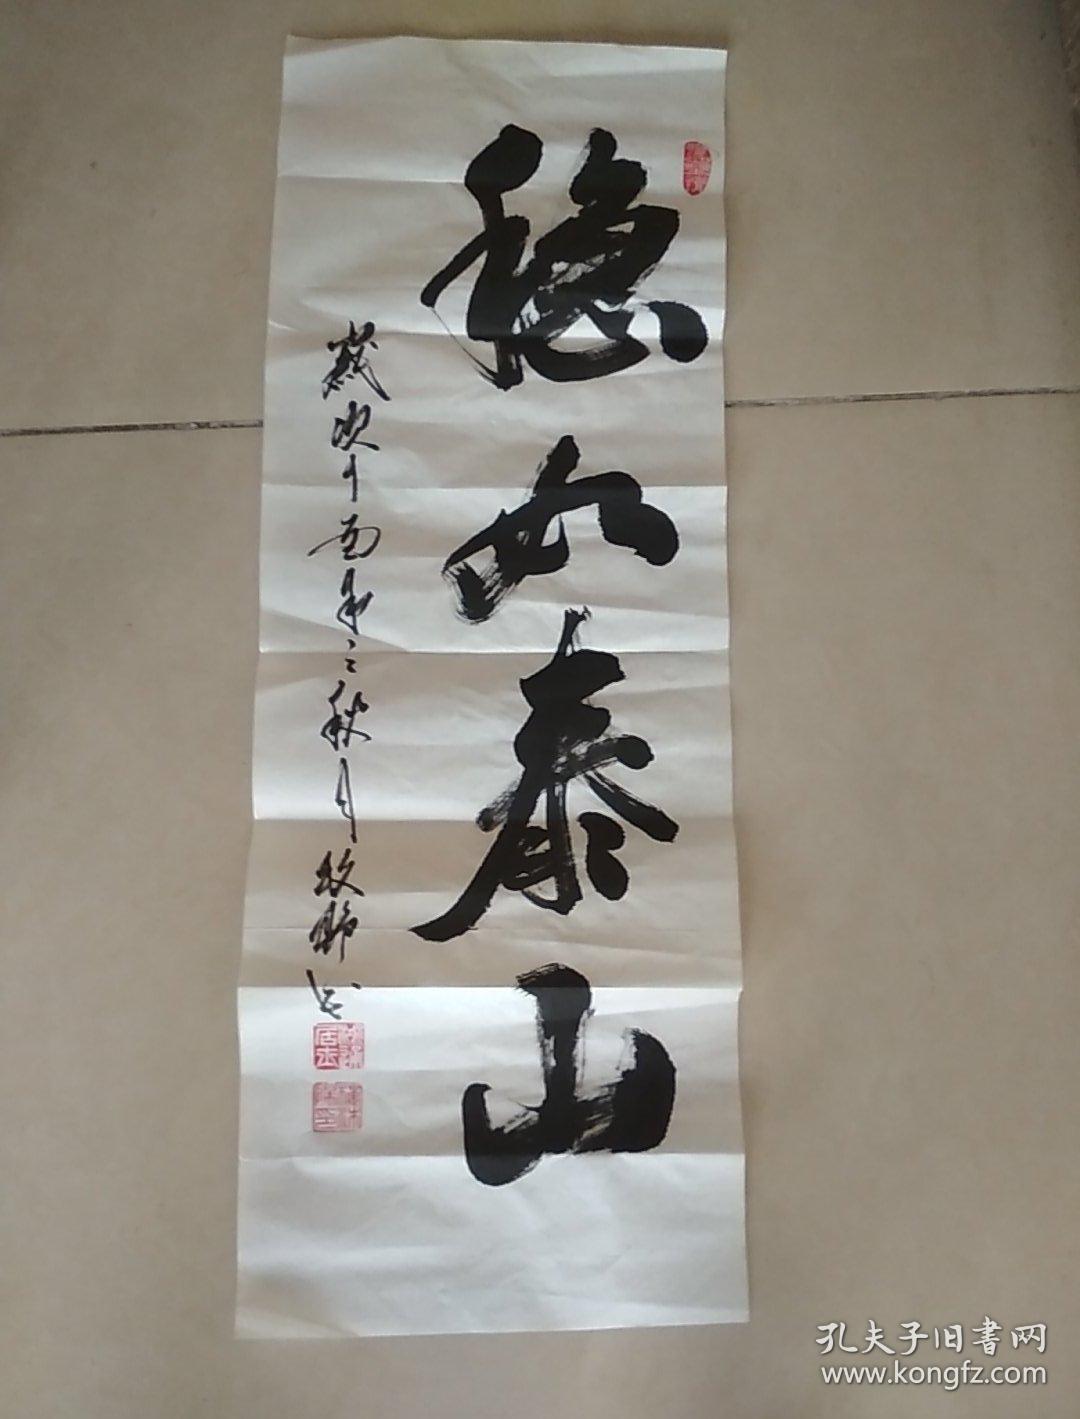 稳如泰山
岁次丁酉年之秋月 牧野 书
孔夫子旧書网
www.kongfz.com